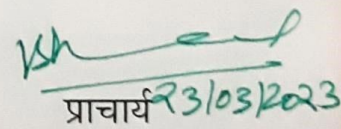 प्राचार्य 23/03/2023